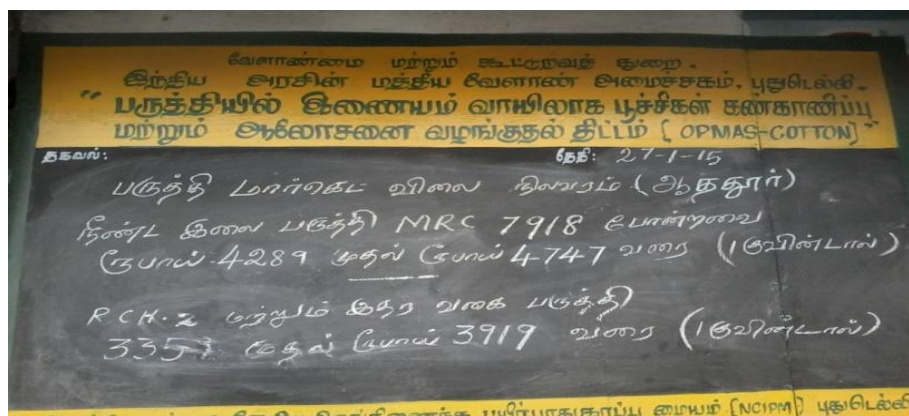 வேளாண்மை மற்றும் கூட்டுறவுத் துறை.
இந்திய அரசின் மத்திய வேளாண் அமைச்சகம், புதுடெல்லி.
“பருத்தியில் இணையம் வாயிலாக பூச்சிகள் கண்காணிப்பு
மற்றும் ஆலோசனை வழங்குதல் திட்டம் [OPMAS-COTTON]”
தகவல்: தேதி: 27-1-15
பருத்தி மார்கெட் விலை நிலவரம் (ஆத்தூர்)
நீண்ட இலை பருத்தி MRC 7918 போன்றவை
ரூபாய் 4289 முதல் ரூபாய் 4747 வரை (1குவிண்டால்)
RCH.2 மற்றும் இதர வகை பருத்தி
3353 முதல் ரூபாய் 3919 வரை (1குவிண்டால்)
பயிர்பாதுகாப்பு மையம் (NCIPM) புதுடெல்லி